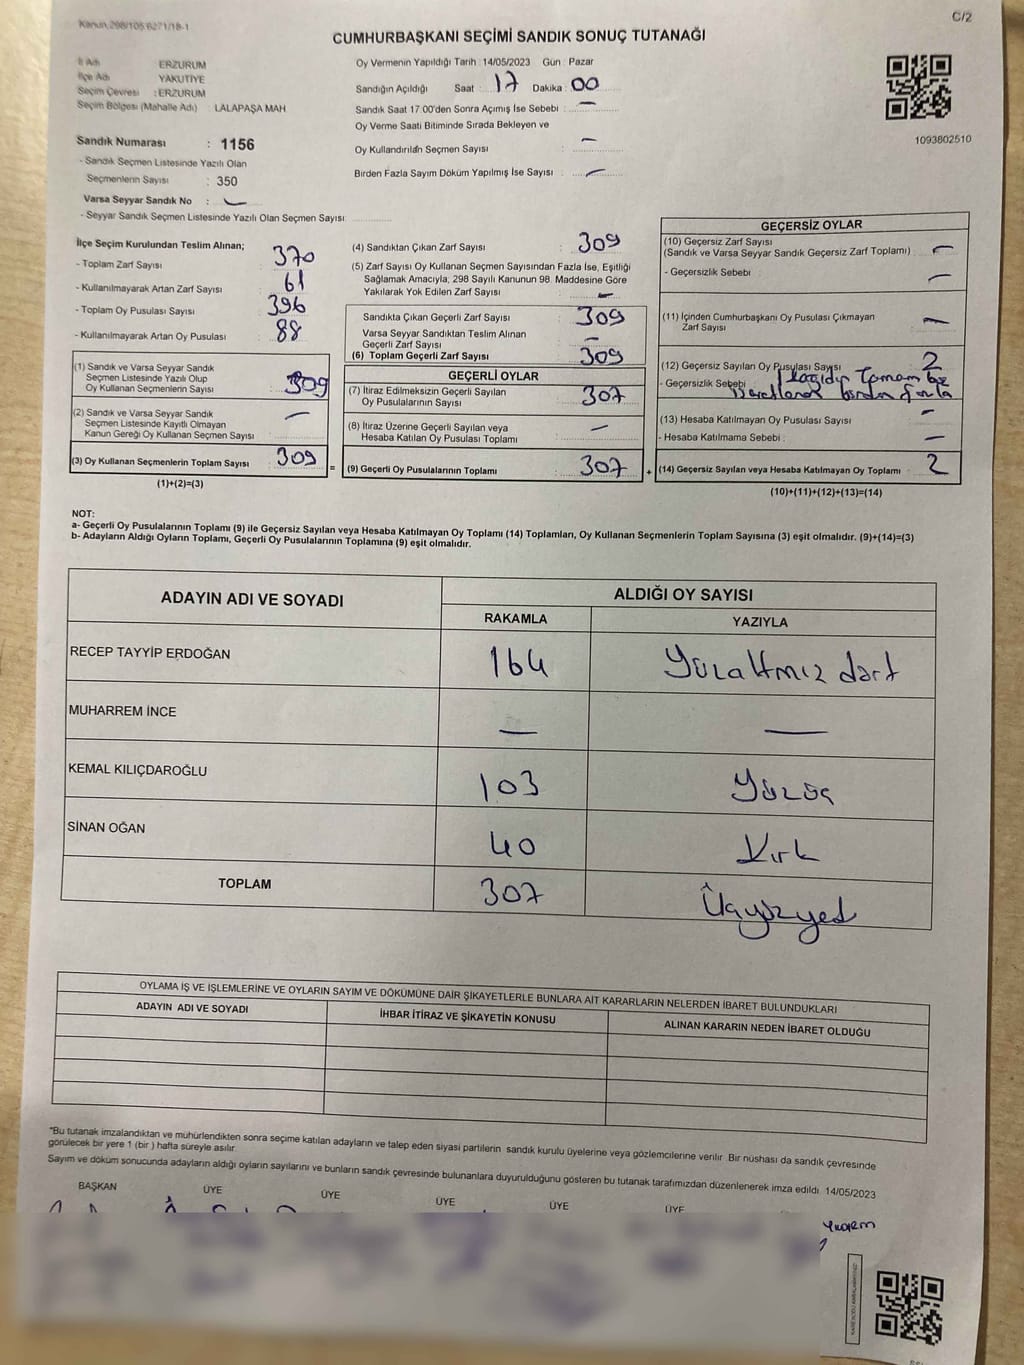 Kanun,298/105,6271/18-1
C/2
CUMHURBAŞKANI SEÇİMİ SANDIK SONUÇ TUTANAĞI
İl Adı ERZURUM
İlçe Adı YAKUTİYE
Seçim Çevresi : ERZURUM
Seçim Bölgesi (Mahalle Adı) : LALAPAŞA MAH
Sandık Numarası : 1156
- Sandık Seçmen Listesinde Yazılı Olan
Seçmenlerin Sayısı : 350
Varsa Seyyar Sandık No : —
- Seyyar Sandık Seçmen Listesinde Yazılı Olan Seçmen Sayısı:
Oy Vermenin Yapıldığı Tarih : 14/05/2023 Gün : Pazar
Sandığın Açıldığı Saat : 17 Dakika : 00
Sandık Saat 17.00'den Sonra Açımış İse Sebebi : —
Oy Verme Saati Bitiminde Sırada Bekleyen ve
Oy Kullandırılan Seçmen Sayısı : —
Birden Fazla Sayım Döküm Yapılmış İse Sayısı : —
1093802510
İlçe Seçim Kurulundan Teslim Alınan;
- Toplam Zarf Sayısı : 370
- Kullanılmayarak Artan Zarf Sayısı : 61
- Toplam Oy Pusulası Sayısı : 396
- Kullanılmayarak Artan Oy Pusulası : 88
(1) Sandık ve Varsa Seyyar Sandık
Seçmen Listesinde Yazılı Olup
Oy Kullanan Seçmenlerin Sayısı : 309
(2) Sandık ve Varsa Seyyar Sandık
Seçmen Listesinde Kayıtlı Olmayan
Kanun Gereği Oy Kullanan Seçmen Sayısı : —
(3) Oy Kullanan Seçmenlerin Toplam Sayısı : 309
(1)+(2)=(3)
=
(4) Sandıktan Çıkan Zarf Sayısı : 309
(5) Zarf Sayısı Oy Kullanan Seçmen Sayısından Fazla İse, Eşitliği
Sağlamak Amacıyla, 298 Sayılı Kanunun 98. Maddesine Göre
Yakılarak Yok Edilen Zarf Sayısı : —
Sandıkta Çıkan Geçerli Zarf Sayısı : 309
Varsa Seyyar Sandıktan Teslim Alınan
Geçerli Zarf Sayısı : —
(6) Toplam Geçerli Zarf Sayısı : 309
GEÇERLİ OYLAR
(7) İtiraz Edilmeksizin Geçerli Sayılan
Oy Pusulalarının Sayısı : 307
(8) İtiraz Üzerine Geçerli Sayılan veya
Hesaba Katılan Oy Pusulası Toplamı : —
(9) Geçerli Oy Pusulalarının Toplamı : 307
+
GEÇERSİZ OYLAR
(10) Geçersiz Zarf Sayısı
(Sandık ve Varsa Seyyar Sandık Geçersiz Zarf Toplamı) : —
- Geçersizlik Sebebi : —
(11) İçinden Cumhurbaşkanı Oy Pusulası Çıkmayan
Zarf Sayısı : —
(12) Geçersiz Sayılan Oy Pusulası Sayısı : 2
- Geçersizlik Sebebi
(13) Hesaba Katılmayan Oy Pusulası Sayısı : —
- Hesaba Katılmama Sebebi : —
(14) Geçersiz Sayılan veya Hesaba Katılmayan Oy Toplamı : 2
(10)+(11)+(12)+(13)=(14)
NOT:
a- Geçerli Oy Pusulalarının Toplamı (9) ile Geçersiz Sayılan veya Hesaba Katılmayan Oy Toplamı (14) Toplamları, Oy Kullanan Seçmenlerin Toplam Sayısına (3) eşit olmalıdır. (9)+(14)=(3)
b- Adayların Aldığı Oyların Toplamı, Geçerli Oy Pusulalarının Toplamına (9) eşit olmalıdır.
ADAYIN ADI VE SOYADI ALDIĞI OY SAYISI
RAKAMLA YAZIYLA
RECEP TAYYİP ERDOĞAN 164 Yüzaltmız dört
MUHARREM İNCE — —
KEMAL KILIÇDAROĞLU 103 Yüzüç
SİNAN OĞAN 40 Kırk
TOPLAM 307 Üçyüzyedi
OYLAMA İŞ VE İŞLEMLERİNE VE OYLARIN SAYIM VE DÖKÜMÜNE DAİR ŞİKAYETLERLE BUNLARA AİT KARARLARIN NELERDEN İBARET BULUNDUKLARI
ADAYIN ADI VE SOYADI İHBAR İTİRAZ VE ŞİKAYETİN KONUSU ALINAN KARARIN NEDEN İBARET OLDUĞU
*Bu tutanak imzalandıktan ve mühürlendikten sonra seçime katılan adayların ve talep eden siyasi partilerin sandık kurulu üyelerine veya gözlemcilerine verilir. Bir nüshası da sandık çevresinde
görülecek bir yere 1 (bir ) hafta süreyle asılır.
Sayım ve döküm sonucunda adayların aldığı oyların sayılarını ve bunların sandık çevresinde bulunanlara duyurulduğunu gösteren bu tutanak tarafımızdan düzenlenerek imza edildi. 14/05/2023
BAŞKAN ÜYE ÜYE ÜYE ÜYE ÜYE